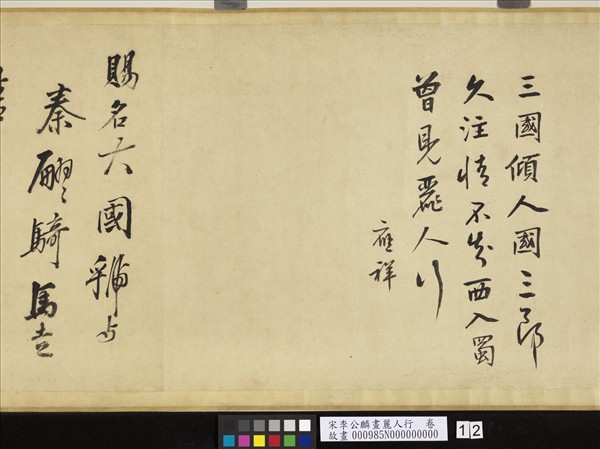 三國傾人國三郎
久注情不知西入蜀
曾見麗人行
應祥
賜名大國虢与
秦翩〻騎馬
宋李公麟畫麗人行 卷
故畫 000985N000000000
12